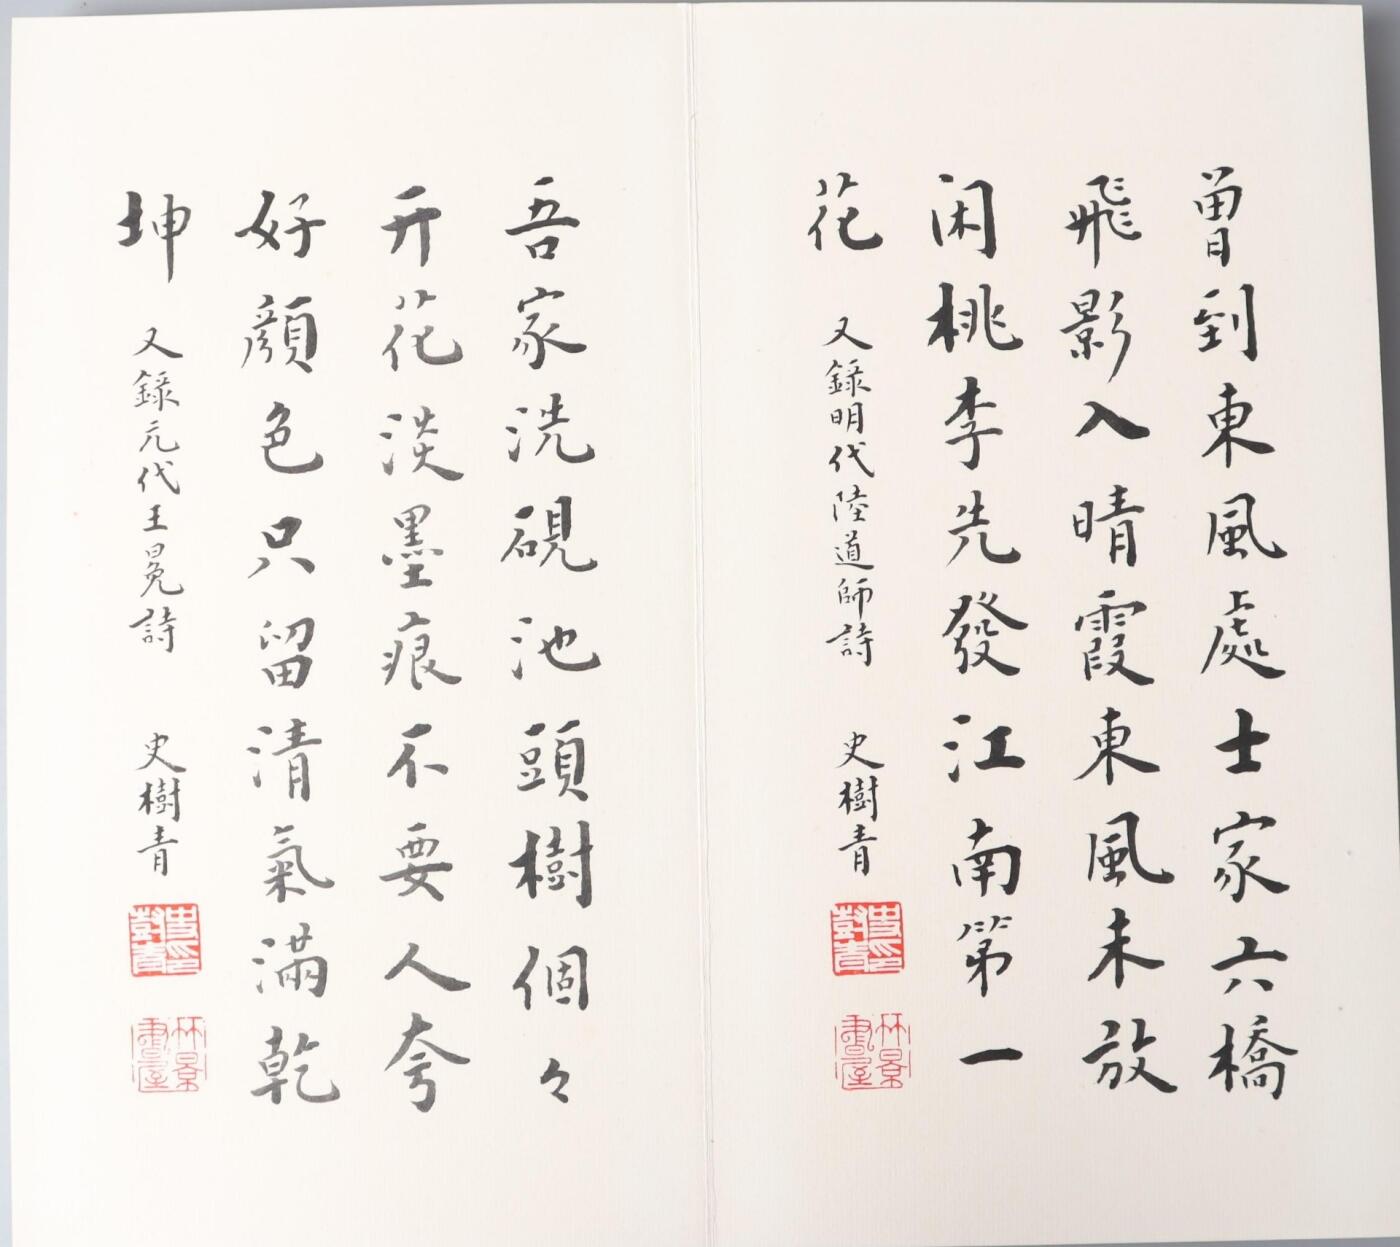 曾到東風處士家六橋
飛影入晴霞東風未放
闲桃李先發江南第一
花
又錄明代陸道師詩 史樹青
史印樹青
竹景書屋
吾家洗硯池頭樹個々
开花淡墨痕不要人夸
好顔色只留清氣滿乾
坤
又錄元代王冕詩 史樹青
史印樹青
竹景書屋